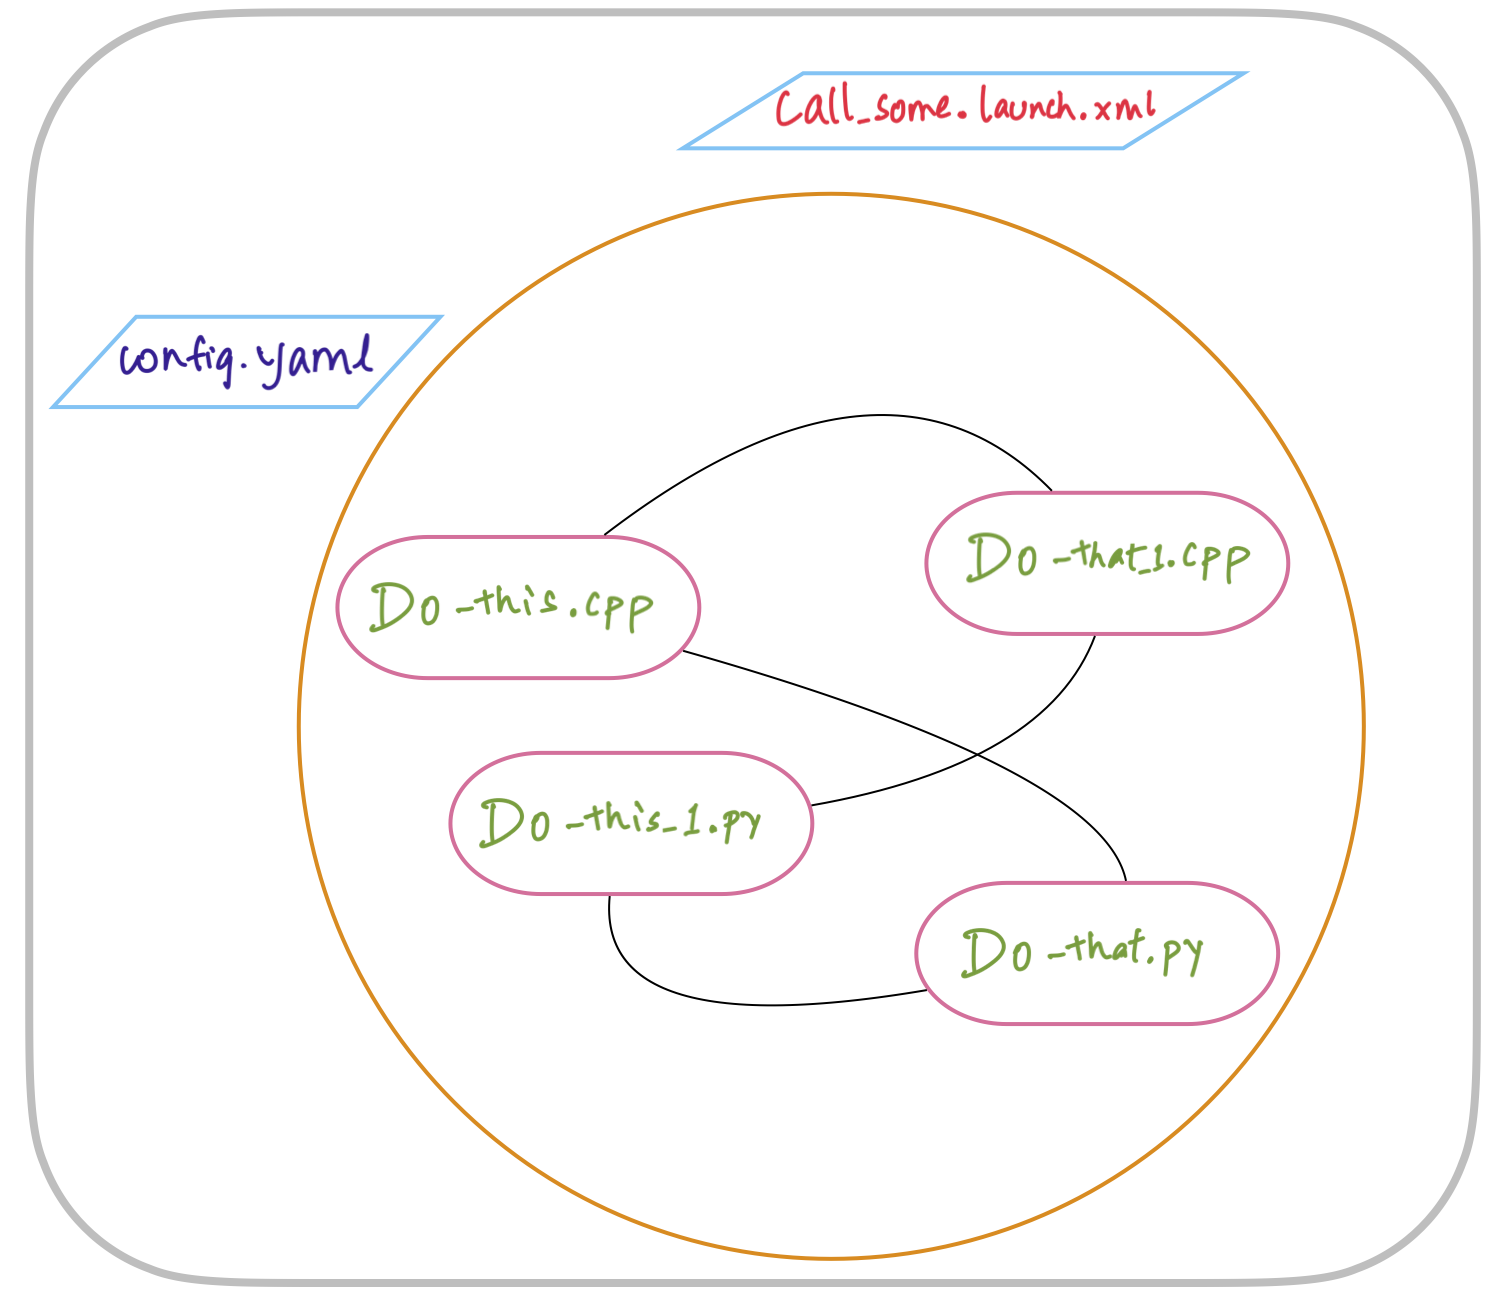 Call_some.launch.xml
config.yaml
Do-that_1.cpp
Do-this.cpp
Do-this_1.py
Do-that.py